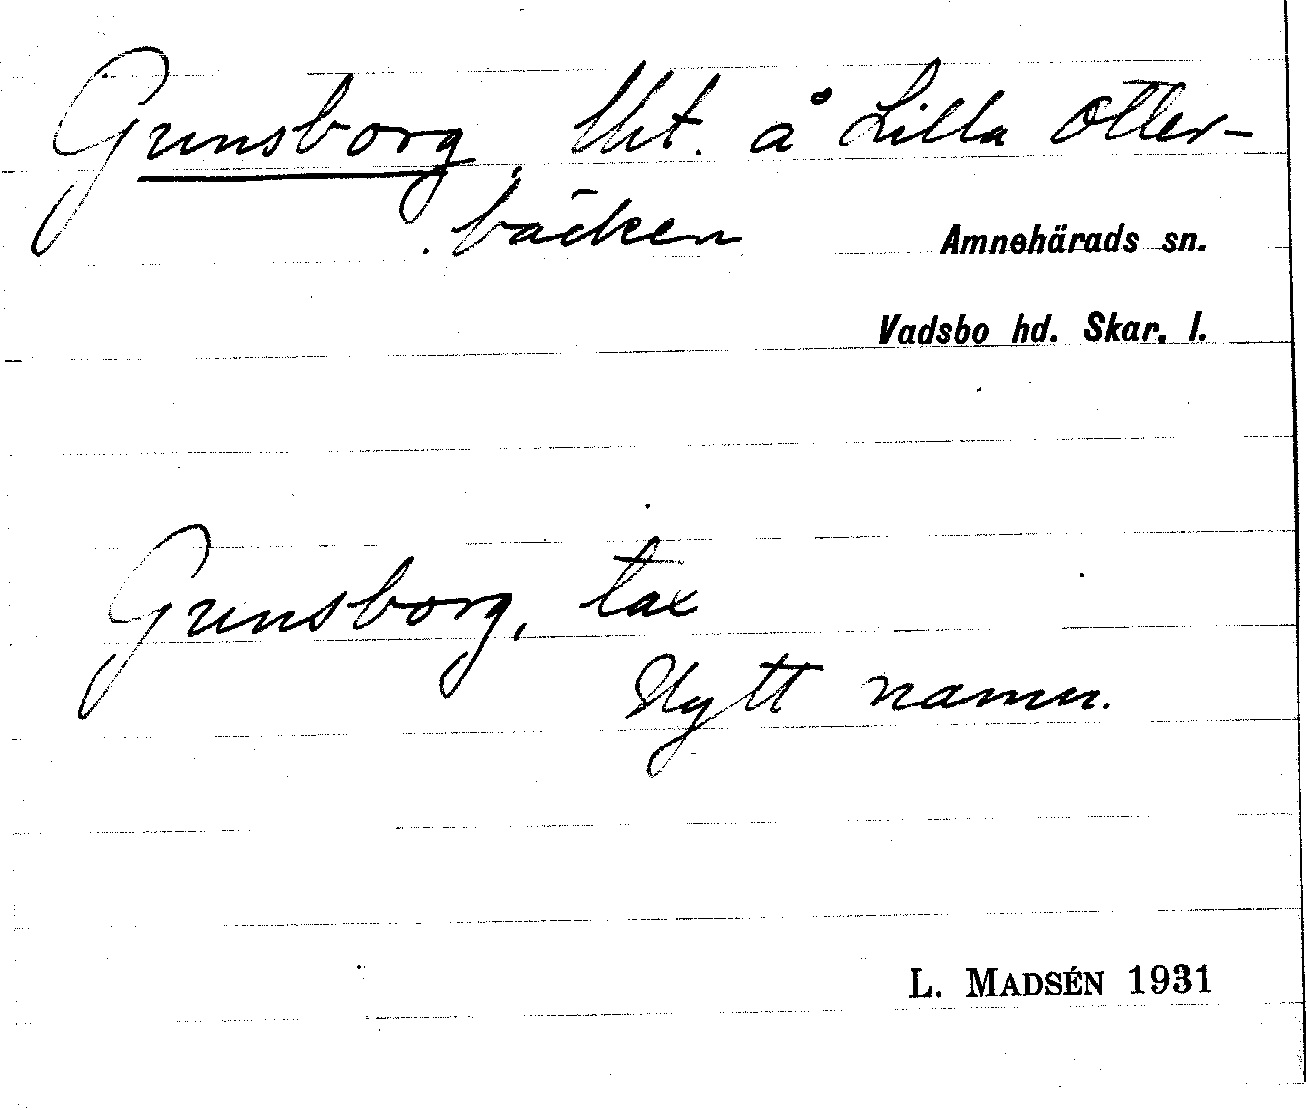 Gunsborg, lht. å Lilla Otter-
bäcken
Amnehärads sn.
Vadsbo hd. Skar. l.
Gunsborg, tax
Nytt namn.
L. MADSÉN 1931